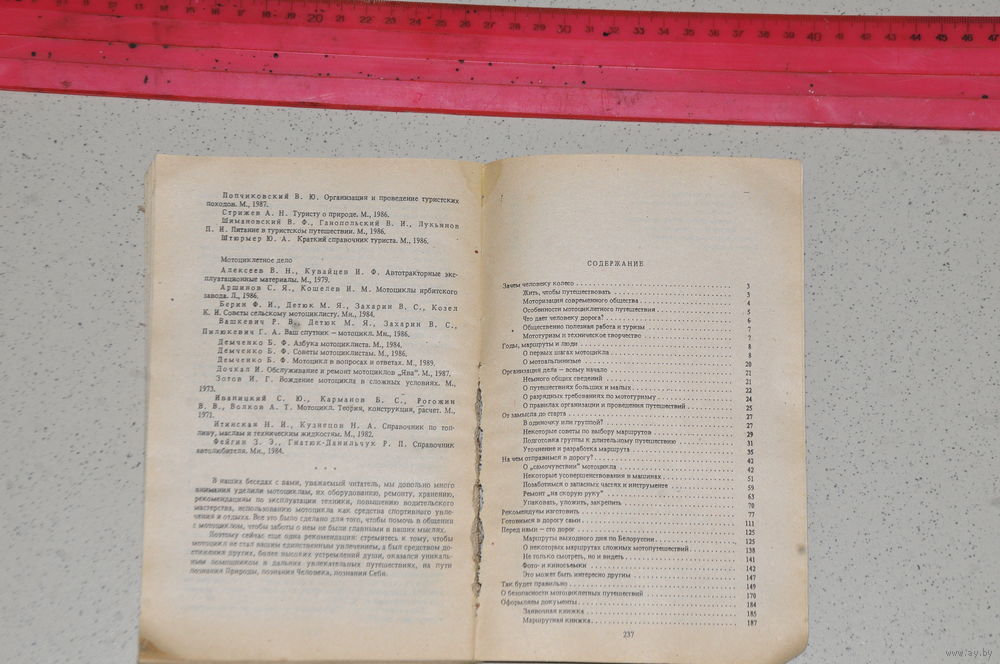 Попчиковский В. Ю. Организация и проведение туристских
походов. М., 1987.
Стрижев А. Н. Туристу о природе. М., 1986.
Шимановский В. Ф., Ганопольский В. И., Лукьянов
П. И. Питание в туристском путешествии. М., 1986.
Штюрмер Ю. А. Краткий справочник туриста. М., 1986.
Мотоциклетное дело
Алексеев В. Н., Кувайцев И. Ф. Автотракторные экс-
плуатационные материалы. М., 1979.
Аршинов С. Я., Кошелев И. М. Мотоциклы ирбитского
завода. Л., 1986.
Берин Ф. И., Детюк М. Я., Захарин В. С., Козел
К. И. Советы сельскому мотоциклисту. Мн., 1984.
Вашкевич Р. В., Детюк М. Я., Захарин В. С.,
Пилюкевич Г. А. Ваш спутник — мотоцикл. Мн., 1986.
Демченко Б. Ф. Азбука мотоциклиста. М., 1984.
Демченко Б. Ф. Советы мотоциклистам. М., 1986.
Демченко Б. Ф. Мотоцикл в вопросах и ответах. М., 1989.
Дочкал И. Обслуживание и ремонт мотоциклов „Ява". М., 1987.
Зотов И. Г. Вождение мотоцикла в сложных условиях. М.,
1973.
Иваницкий С. Ю., Карманов Б. С., Рогожин
В. В., Волков А. Т. Мотоцикл. Теория, конструкция, расчет. М.,
1971.
Итинская Н. И., Кузнецов Н. А. Справочник по топ-
ливу, маслам и техническим жидкостям. М., 1982.
Фейгин З. Э., Гнатюк-Данильчук Р. П. Справочник
автолюбителя. Мн., 1984.
* * *
В наших беседах с вами, уважаемый читатель, мы довольно много
внимания уделили мотоциклам, их оборудованию, ремонту, хранению,
рекомендациям по эксплуатации техники, повышению водительского
мастерства, использованию мотоцикла как средства спортивного увле-
чения и отдыха. Все это было сделано для того, чтобы помочь в общении
с мотоциклом, чтобы заботы о нем не были главными в ваших мыслях.
Поэтому сейчас еще одна рекомендация: стремитесь к тому, чтобы
мотоцикл не стал вашим единственным увлечением, а был средством до-
стижения других, более высоких устремлений души, оказался уникаль-
ным помощником в дальних увлекательных путешествиях, на пути
познания Природы, познания Человека, познания Себя.
СОДЕРЖАНИЕ
Зачем человеку колесо 3
Жить, чтобы путешествовать 3
Моторизация современного общества 4
Особенности мотоциклетного путешествия 5
Что дает человеку дорога? 5
Общественно полезная работа и туризм 6
Мототуризм и техническое творчество 7
Годы, маршруты и люди 8
О первых шагах мотоцикла 8
О мотоальпинизме 20
Организация дела — всему начало 21
Немного общих сведений 21
О путешествиях больших и малых 22
О разрядных требованиях по мототуризму 24
О правилах организации и проведения путешествий 25
От замысла до старта 27
В одиночку или группой? 27
Некоторые советы по выбору маршрутов 29
Подготовка группы к длительному путешествию 31
Уточнение и разработка маршрута 35
На чем отправимся в дорогу? 42
О „самочувствии" мотоцикла 42
Некоторые усовершенствования в машинах 51
Позаботимся о запасных частях и инструменте 59
Ремонт „на скорую руку" 63
Упаковать, уложить, закрепить 70
Рекомендуем изготовить 77
Готовимся в дорогу сами 111
Перед нами — сто дорог 125
Маршруты выходного дня по Белоруссии 125
О некоторых маршрутах сложных мотопутешествий 138
Не только смотреть, но и видеть 141
Фото- и киносъемки 142
Это может быть интересно другим 147
Так будет правильно 149
О безопасности мотоциклетных путешествий 170
Оформляем документы 184
Заявочная книжка 185
Маршрутная книжка 187
237
www.ay.by